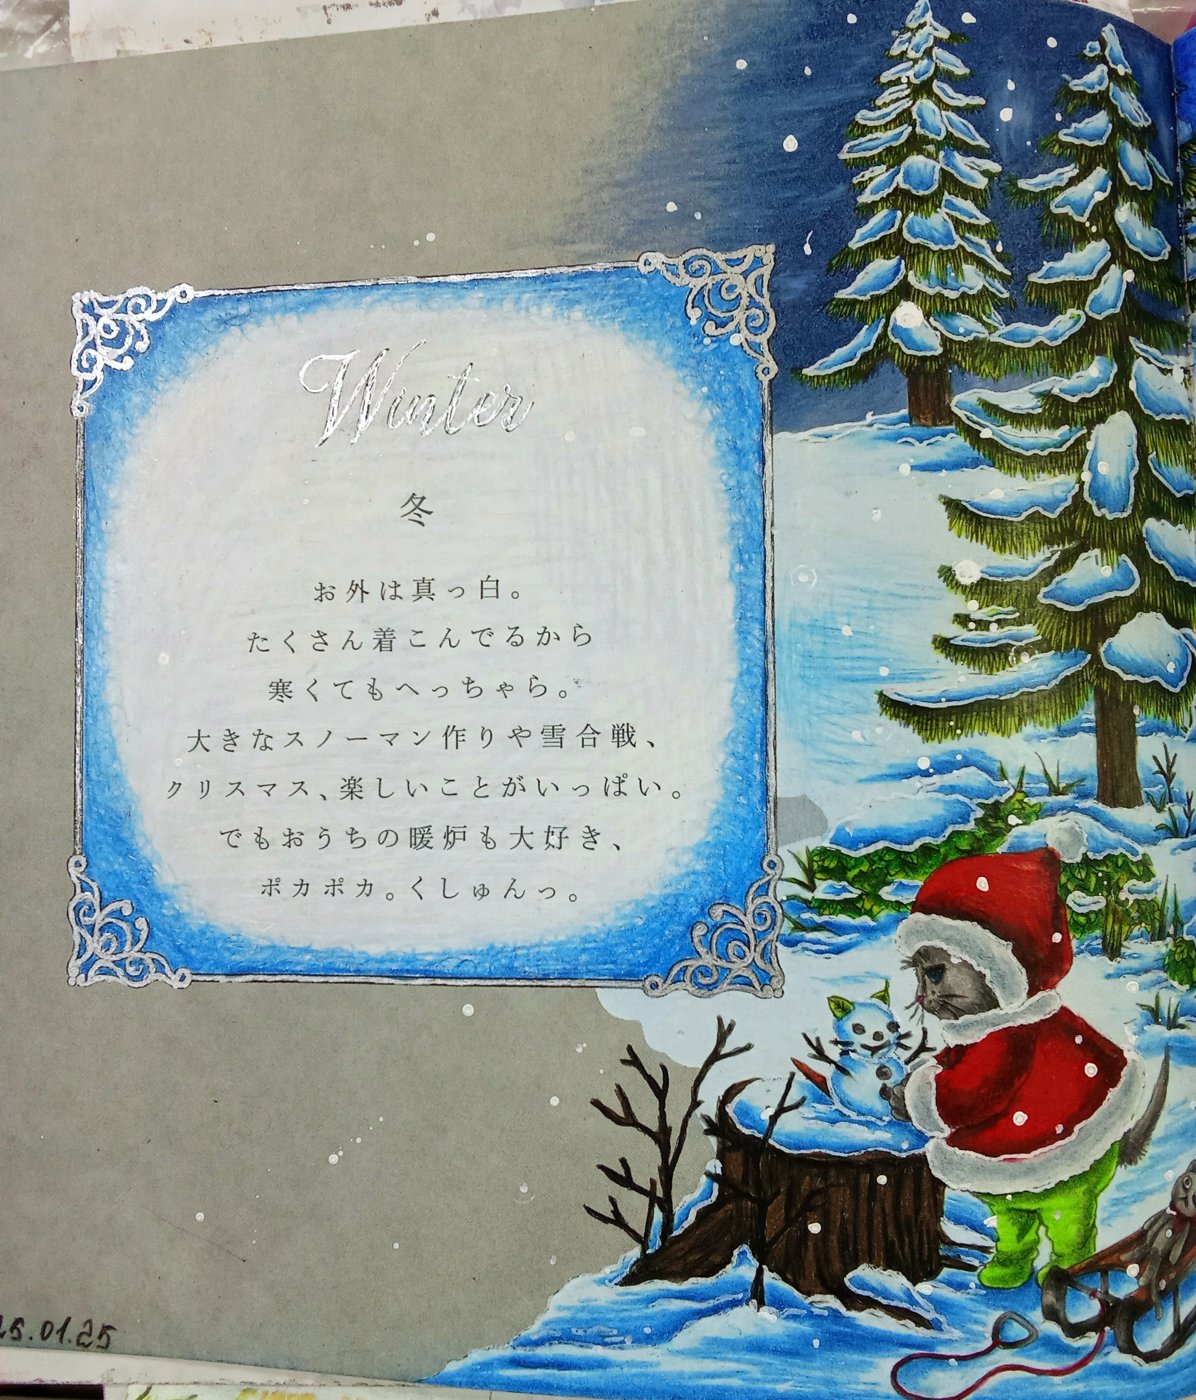 Winter
冬
お外は真っ白。
たくさん着こんでるから
寒くてもへっちゃら。
大きなスノーマン作りや雪合戦、
クリスマス、楽しいことがいっぱい。
でもおうちの暖炉も大好き、
ポカポカ。くしゅんっ。
25.01.25